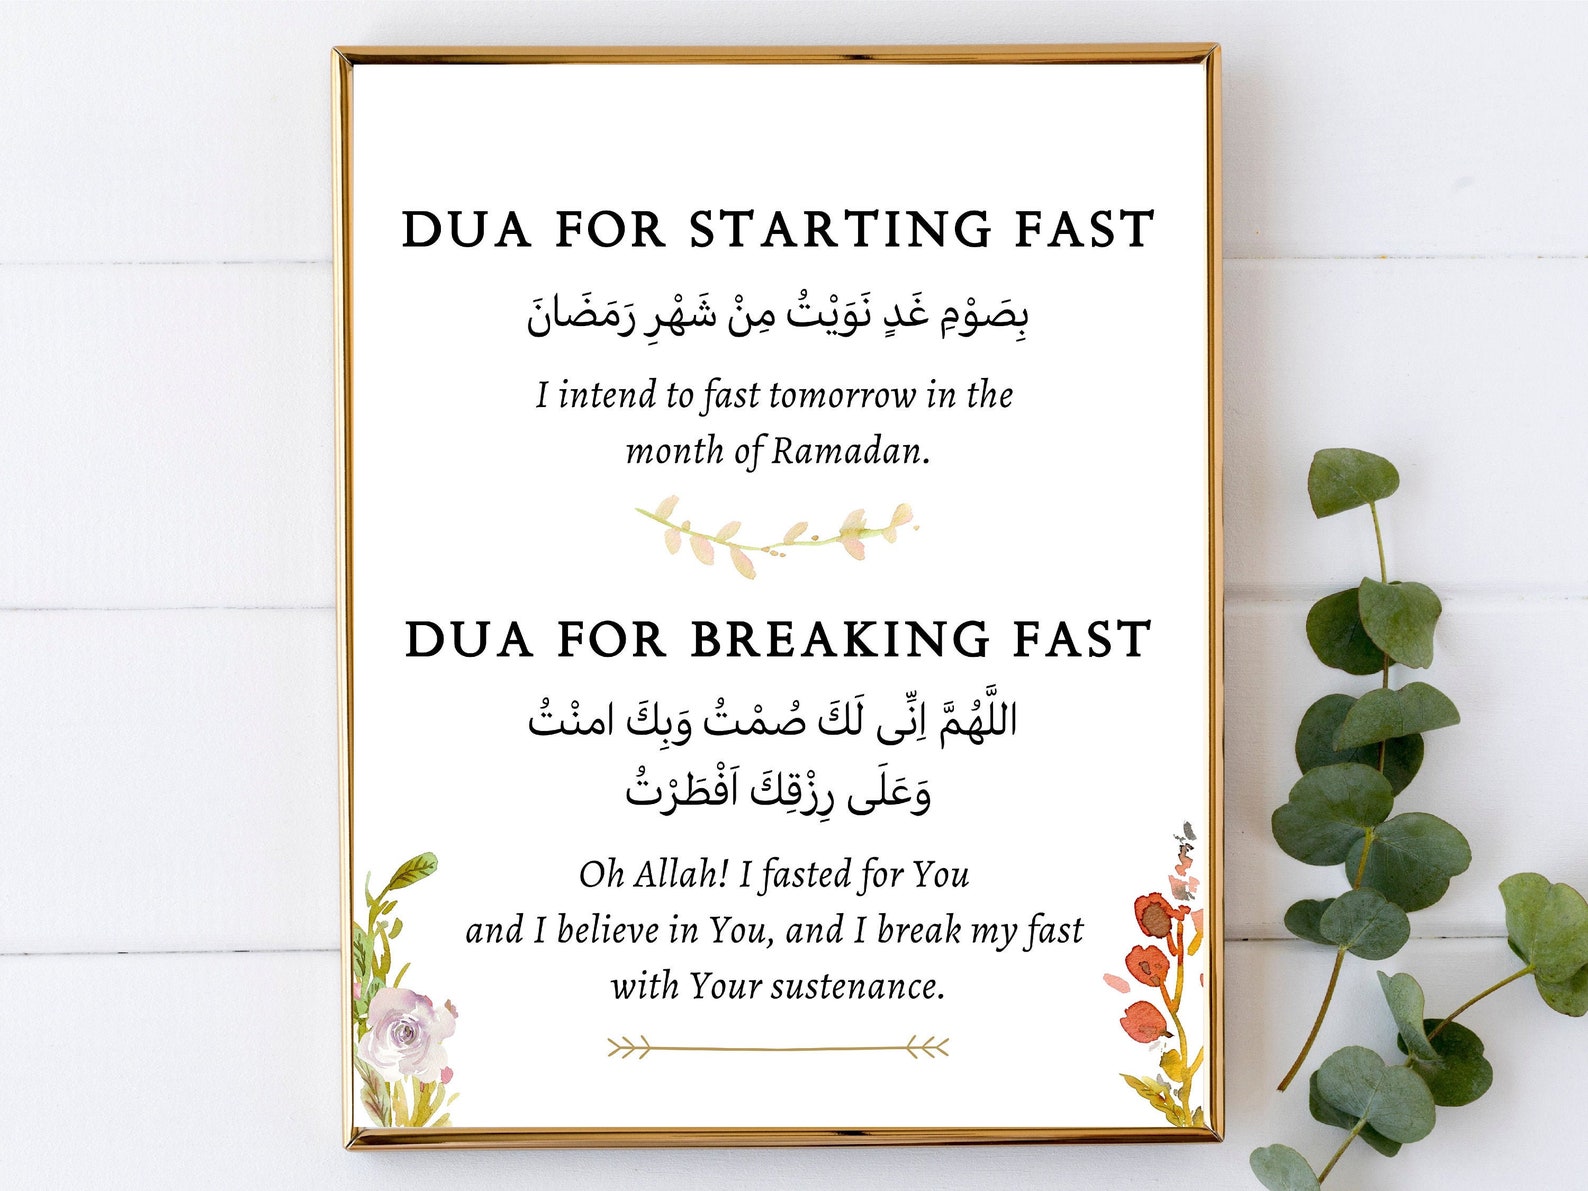 DUA FOR STARTING FAST
بِصَوْمِ غَدٍ نَوَيْتُ مِنْ شَهْرِ رَمَضَانَ
I intend to fast tomorrow in the
month of Ramadan.
DUA FOR BREAKING FAST
اللَّهُمَّ اِنِّى لَكَ صُمْتُ وَبِكَ امنْتُ
وَعَلَى رِزْقِكَ اَفْطَرْتُ
Oh Allah! I fasted for You
and I believe in You, and I break my fast
with Your sustenance.